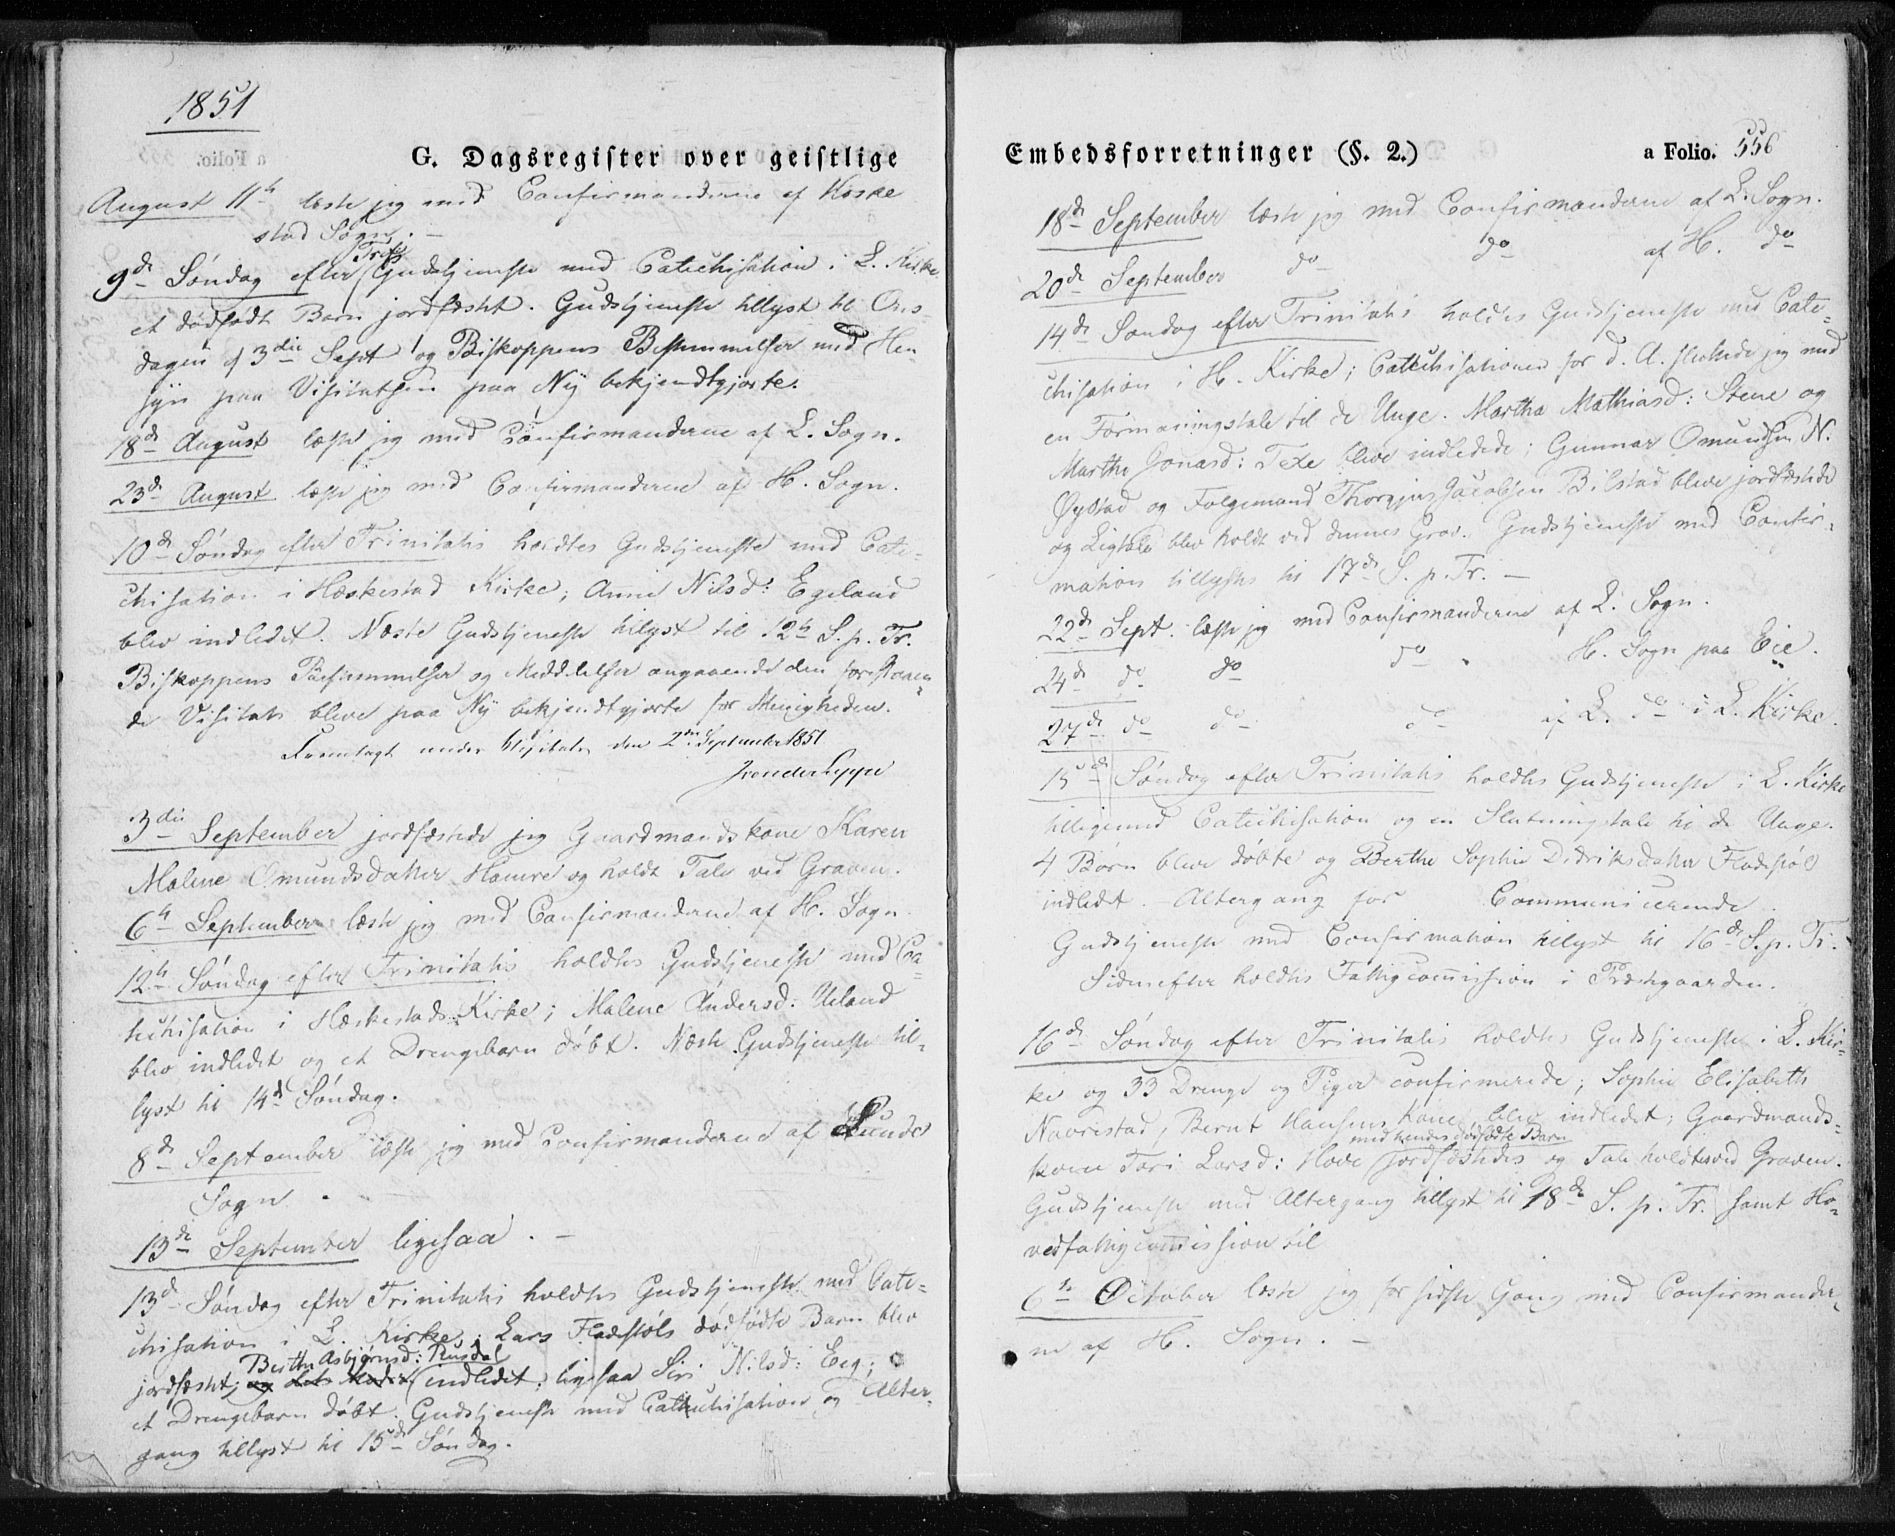 1851
G. Dagsregister over geistlige
August 11te læste jeg med Confirmanderne af Heske
stad Sogn. —
9de Søndag efter Trts Gudstjeneste med Catechisation i L. Kirke
et dødfødt Barn jordfæstet. Gudstjeneste tillyst til Ons-
dagen d 3die Sept og Biskoppens Bestemmelser med Hen
syn paa Visitatsen paa Ny bekjendtgjorte.
18de August læste jeg med Confirmanderne af L. Sogn.
23de August læste jeg med Confirmanderne af H. Sogn.
10de Søndag efter Trinitatis holdtes Gudstjeneste med Cate-
chisation i Heskestad Kirke; Anne Nilsd: Egeland
blev indledet. Næste Gudstjeneste tillyst til 12te S. p. Tr.
Biskoppens Bestemmelser og Meddelelser angaaende den forestaaen
de Visitats bleve paa Ny bekjendtgjorte for Menigheden.
Fremlagt under Visitats den 2den September 1851
3die September jordfæstede jeg Gaardmandskone Karen
Malene Omundsdatter Hamre og holdt Tale ved Graven.
6te September læste jeg med Confirmanderne af H. Sogn.
12te Søndag efter Trinitatis holdtes Gudstjeneste med Ca-
techisation i Heskestads Kirke; Malene Andersd: Ueland
blev indledet og et Drengebarn døbt. Næste Gudstjeneste til-
lyst til 14de Søndag.
8de September læste jeg med Confirmanderne af Lunde
Sogn.
13de September ligesaa. —
13de Søndag efter Trinitatis holdtes Gudstjeneste med Cate-
chisation i L. Kirke. Lars Fladstøls dødfødte Barn blev
Berthe Asbjørnsd: Rusdal
jordfæstet; og dets Moder indledet; ligesaa Siri Nilsd: Eeg;
et Drengebarn døbt. Gudstjeneste med Catechisation og Alter-
gang tillyst til 15de Søndag.
Embedsforretninger (§. 2.)
a Folio. 556
18de September læste jeg med Confirmanderne af L. Sogn.
20de September do do af H. do
14de Søndag efter Trinitatis holdtes Gudstjeneste med Cate-
chisation i H. Kirke; Catechisationen for d. A. sluttede jeg med
en Formaningstale til de Unge. Martha Mathiasd: Stene og
Marthe Jonasd: blive indledede; Gunnar Omundsen N.
Øystad og Følgemand Jacobsen Bilstad bleve jordfæstede
og Ligtale blev holdt ved dennes Grav. Gudstjeneste med Confir-
mation tillystes til 17de S. p. Tr. —
22de Sept. læste jeg med Confirmanderne af L. Sogn.
24de do do do H. Sogn paa Eie.
27de do do do af L. do i L. Kirke.
15de Søndag efter Trinitatis holdtes Gudstjeneste i L. Kirke
tilligemed Catechisation og en Slutningstale til de Unge.
4 Børn bleve døbte og Berthe Sophie Didriksdatter Fladstøl
indledet. Altergang for Communicerende.
Gudstjeneste med Confirmation tillyst til 16de S. p. Tr.
Sidenefter holdtes Fattigcomission i Præstgaarden.
16de Søndag efter Trinitatis holdtes Gudstjeneste i L. Kir-
ke og 33 Drenge og Piger confirmerede; Sophie Elisabeth
Navrestad, Bernt Hansens Kone blev indledet; Gaardmands-
med hendes dødfødte Barn
kone Tori Larsd: Hove jordfæstedes og Tale holdtes ved Graven.
Gudstjeneste med Altergang tillyst til 18de S. p. Tr. samt Ho-
vedfattigcomission til
6te October læste jeg for sidste Gang med Confirmander-
ne af H. Sogn. —